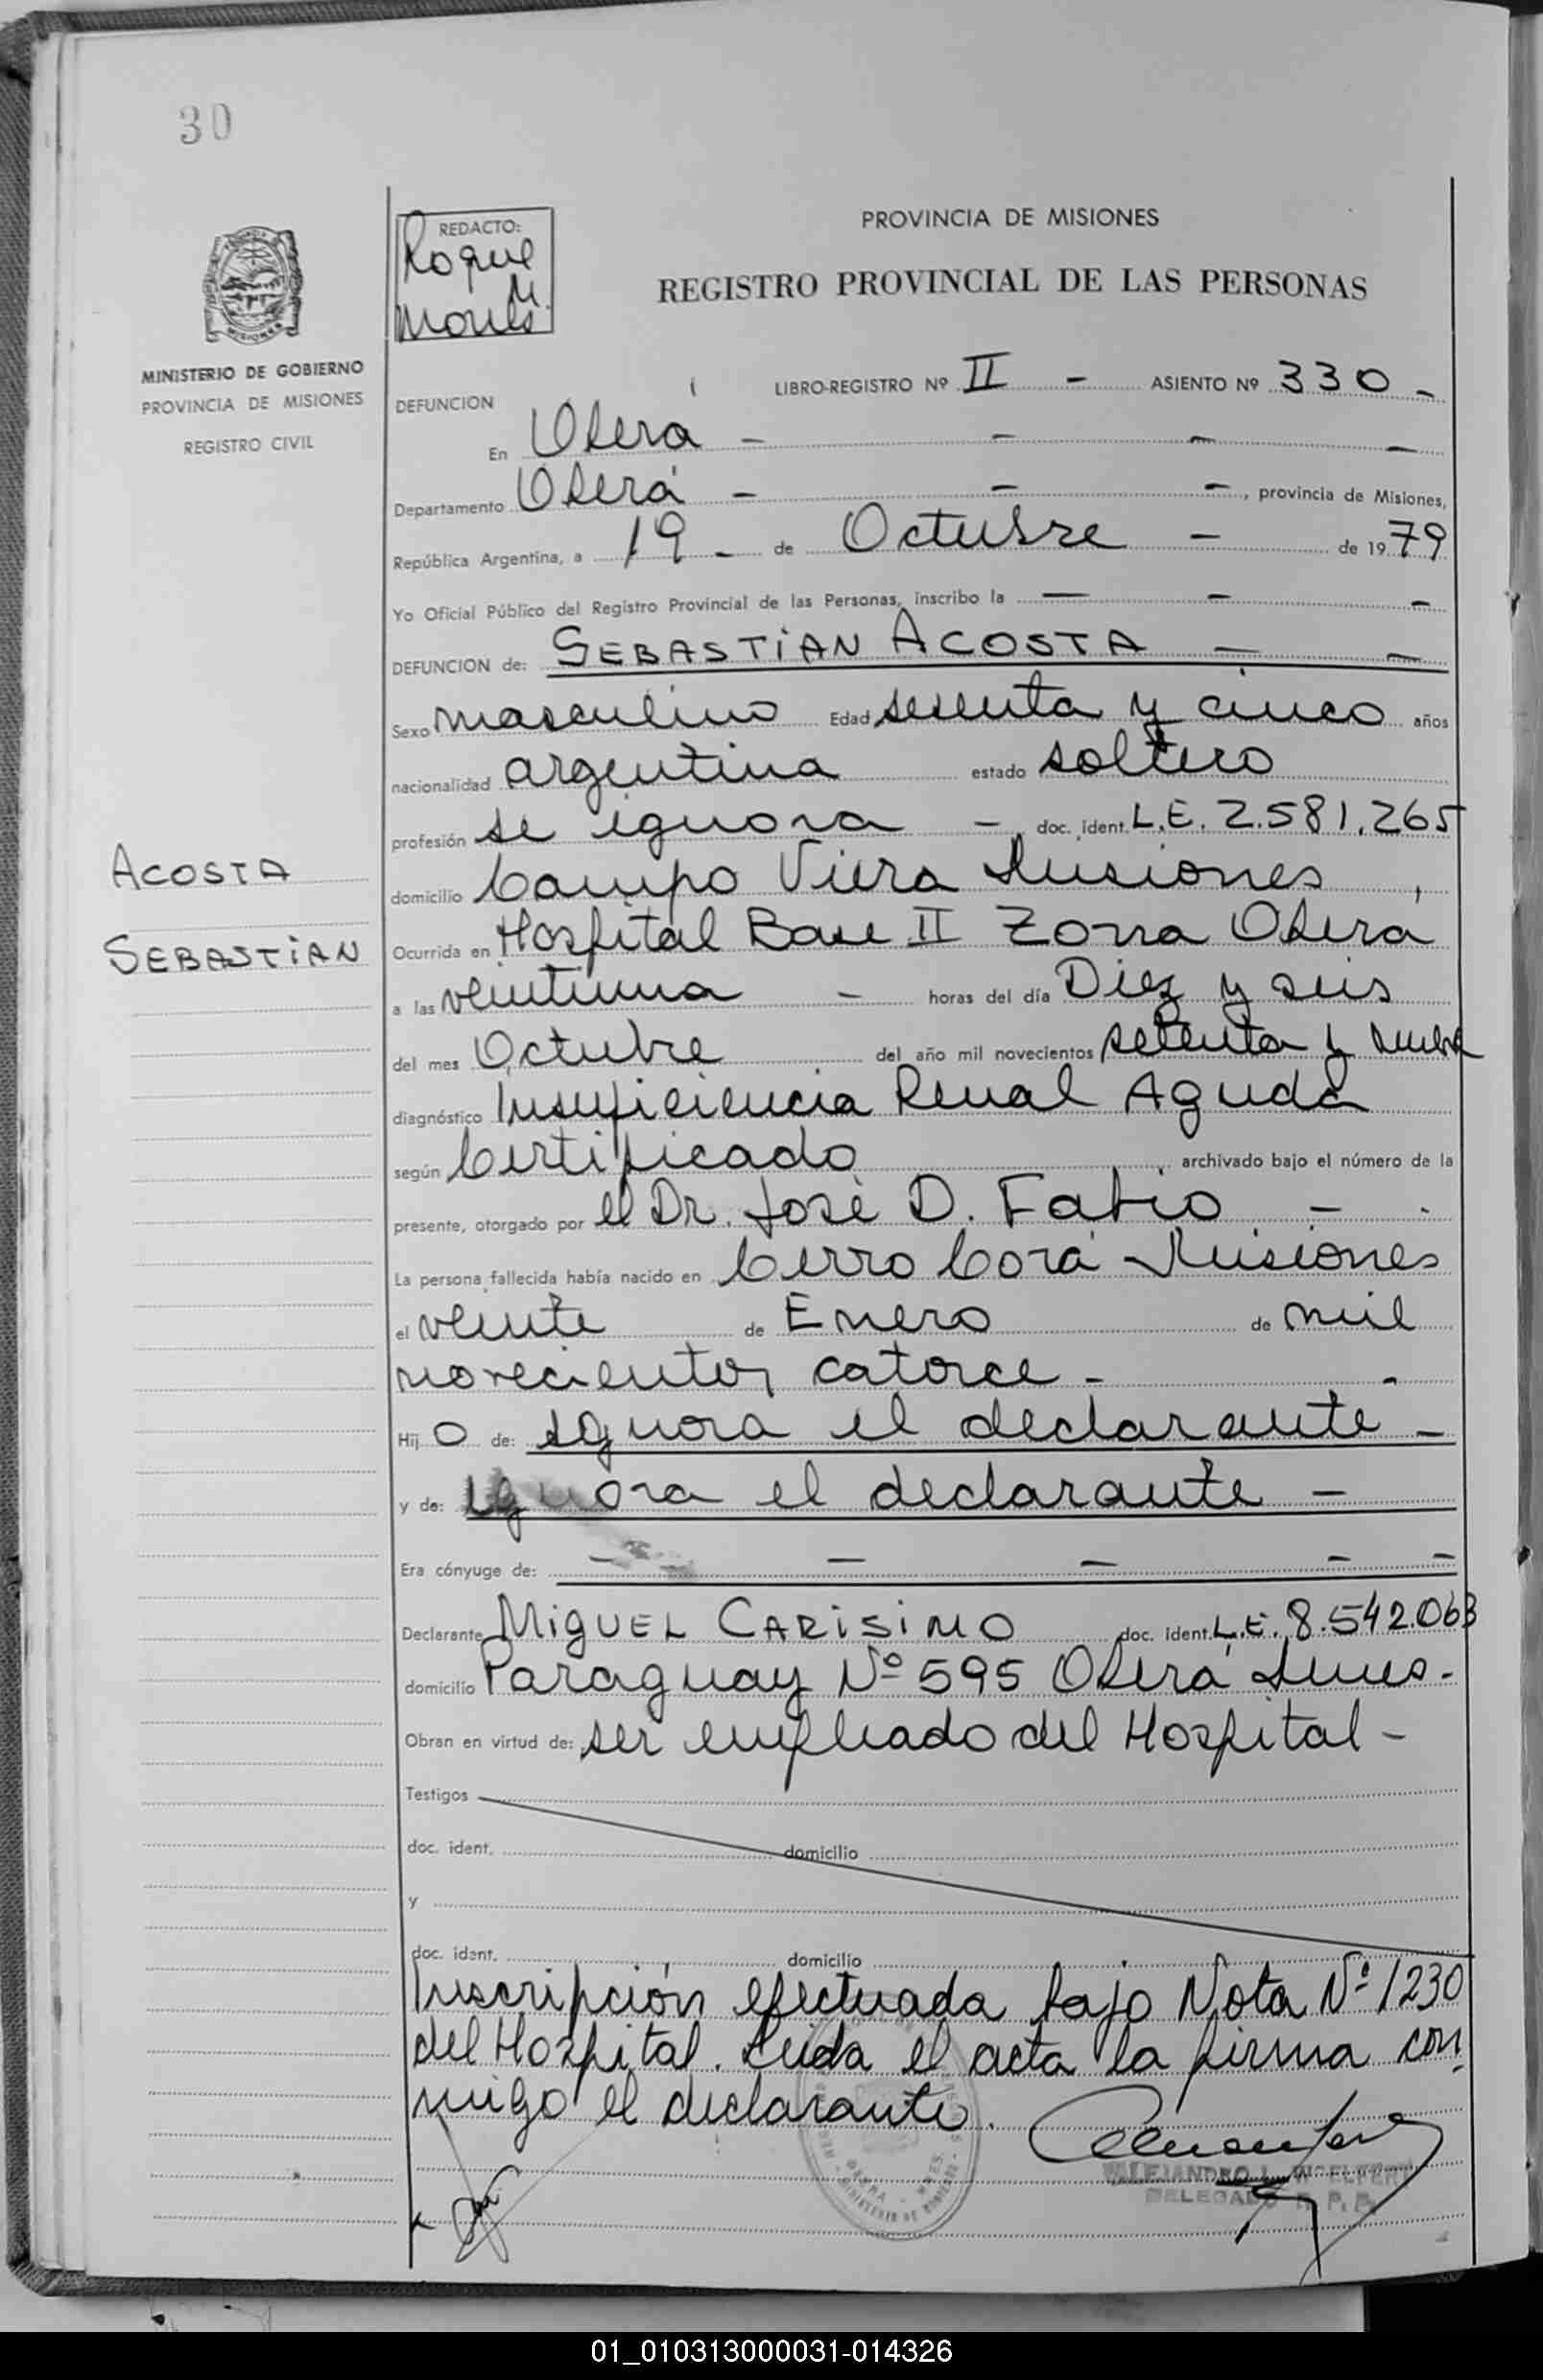 30
REDACTO:
Roque
M.
PROVINCIA DE MISIONES
REGISTRO PROVINCIAL DE LAS PERSONAS
MINISTERIO DE GOBIERNO
PROVINCIA DE MISIONES
REGISTRO CIVIL
LIBRO-REGISTRO Nº II - ASIENTO Nº 330 -
DEFUNCION
En Oberá - - - -
Departamento Oberá - - -, provincia de Misiones,
República Argentina, a 19 - de Octubre - de 1979
Yo Oficial Público del Registro Provincial de las Personas, inscribo la - - -
DEFUNCION de: SEBASTIAN ACOSTA - -
Sexo masculino Edad sesenta y cinco años
nacionalidad argentina estado soltero
profesión se ignora - doc. ident. L.E. 2.581.265
ACOSTA
SEBASTIAN
domicilio Campo Viera Misiones,
Ocurrida en Hospital Base II Zona Oberá
a las veintiuna - horas del día Diez y seis
del mes Octubre del año mil novecientos setenta y nueve
diagnóstico Insuficiencia Renal Aguda
según Certificado, archivado bajo el número de la
presente, otorgado por el Dr. José D. Fabio -
La persona fallecida había nacido en Cerro Corá Misiones
el veinte de Enero de mil
novecientos catorce - -
Hijo de: Ignora el declarante -
y de: Ignora el declarante -
Era cónyuge de: - - - - -
Declarante MIGUEL CARISIMO doc. ident. L.E. 8.542.063
domicilio Paraguay Nº 595 Oberá Mnes.
Obran en virtud de: ser empleado del Hospital -
Testigos
doc. ident. domicilio
y
doc. ident. domicilio
Inscripción efectuada bajo Nota Nº 1230
del Hospital. Leida el acta la firma con
migo el declarante.
ALEJANDRO L. WOELFERT
DELEGADO R. P. P.
01_010313000031-014326